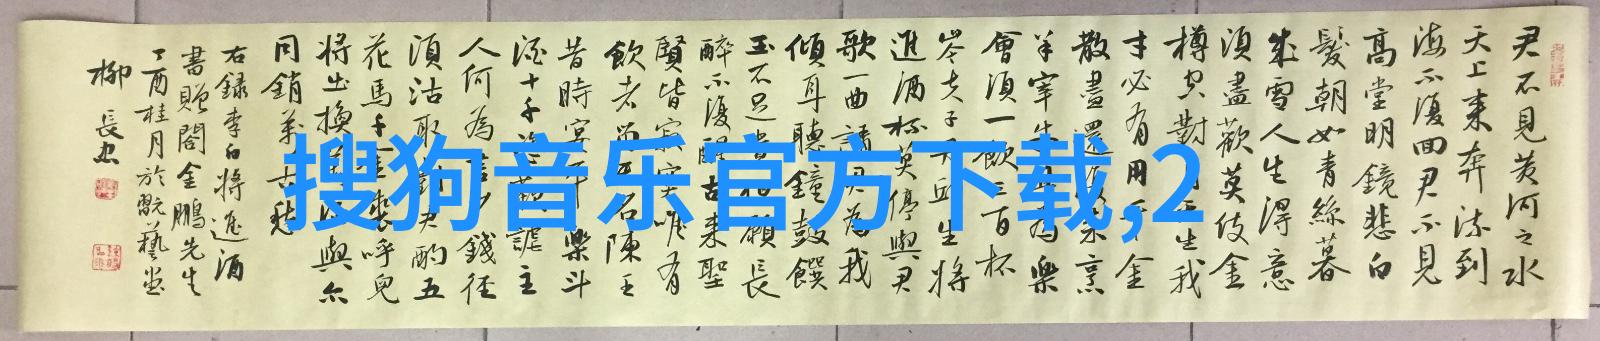 君不見黄河之水
天上来奔流到
海不復回君不見
高堂明鏡悲白
髮朝如青絲暮
成雪人生得意
須盡歡莫使金
樽空對月天生我
才必有用千金
散盡還復来烹
羊宰牛且為樂
會須一飲三百杯
岑夫子丹丘生將
進酒杯莫停與君
歌一曲請君為我
傾耳聽鐘鼓饌
玉不足貴但願長
醉不復醒古来聖
賢皆寂寞唯有
飲者留其名陳王
昔時宴平樂斗
酒十千恣歡謔主
人何為言少錢徑
須沽取對君酌五
花馬千金裘呼兒
將出換美酒與尔
同銷萬古愁
右録李白將進酒
書贈閤金鵬先生
丁酉桂月於翫藝堂
柳長忠
搜狗音乐官方下载,2